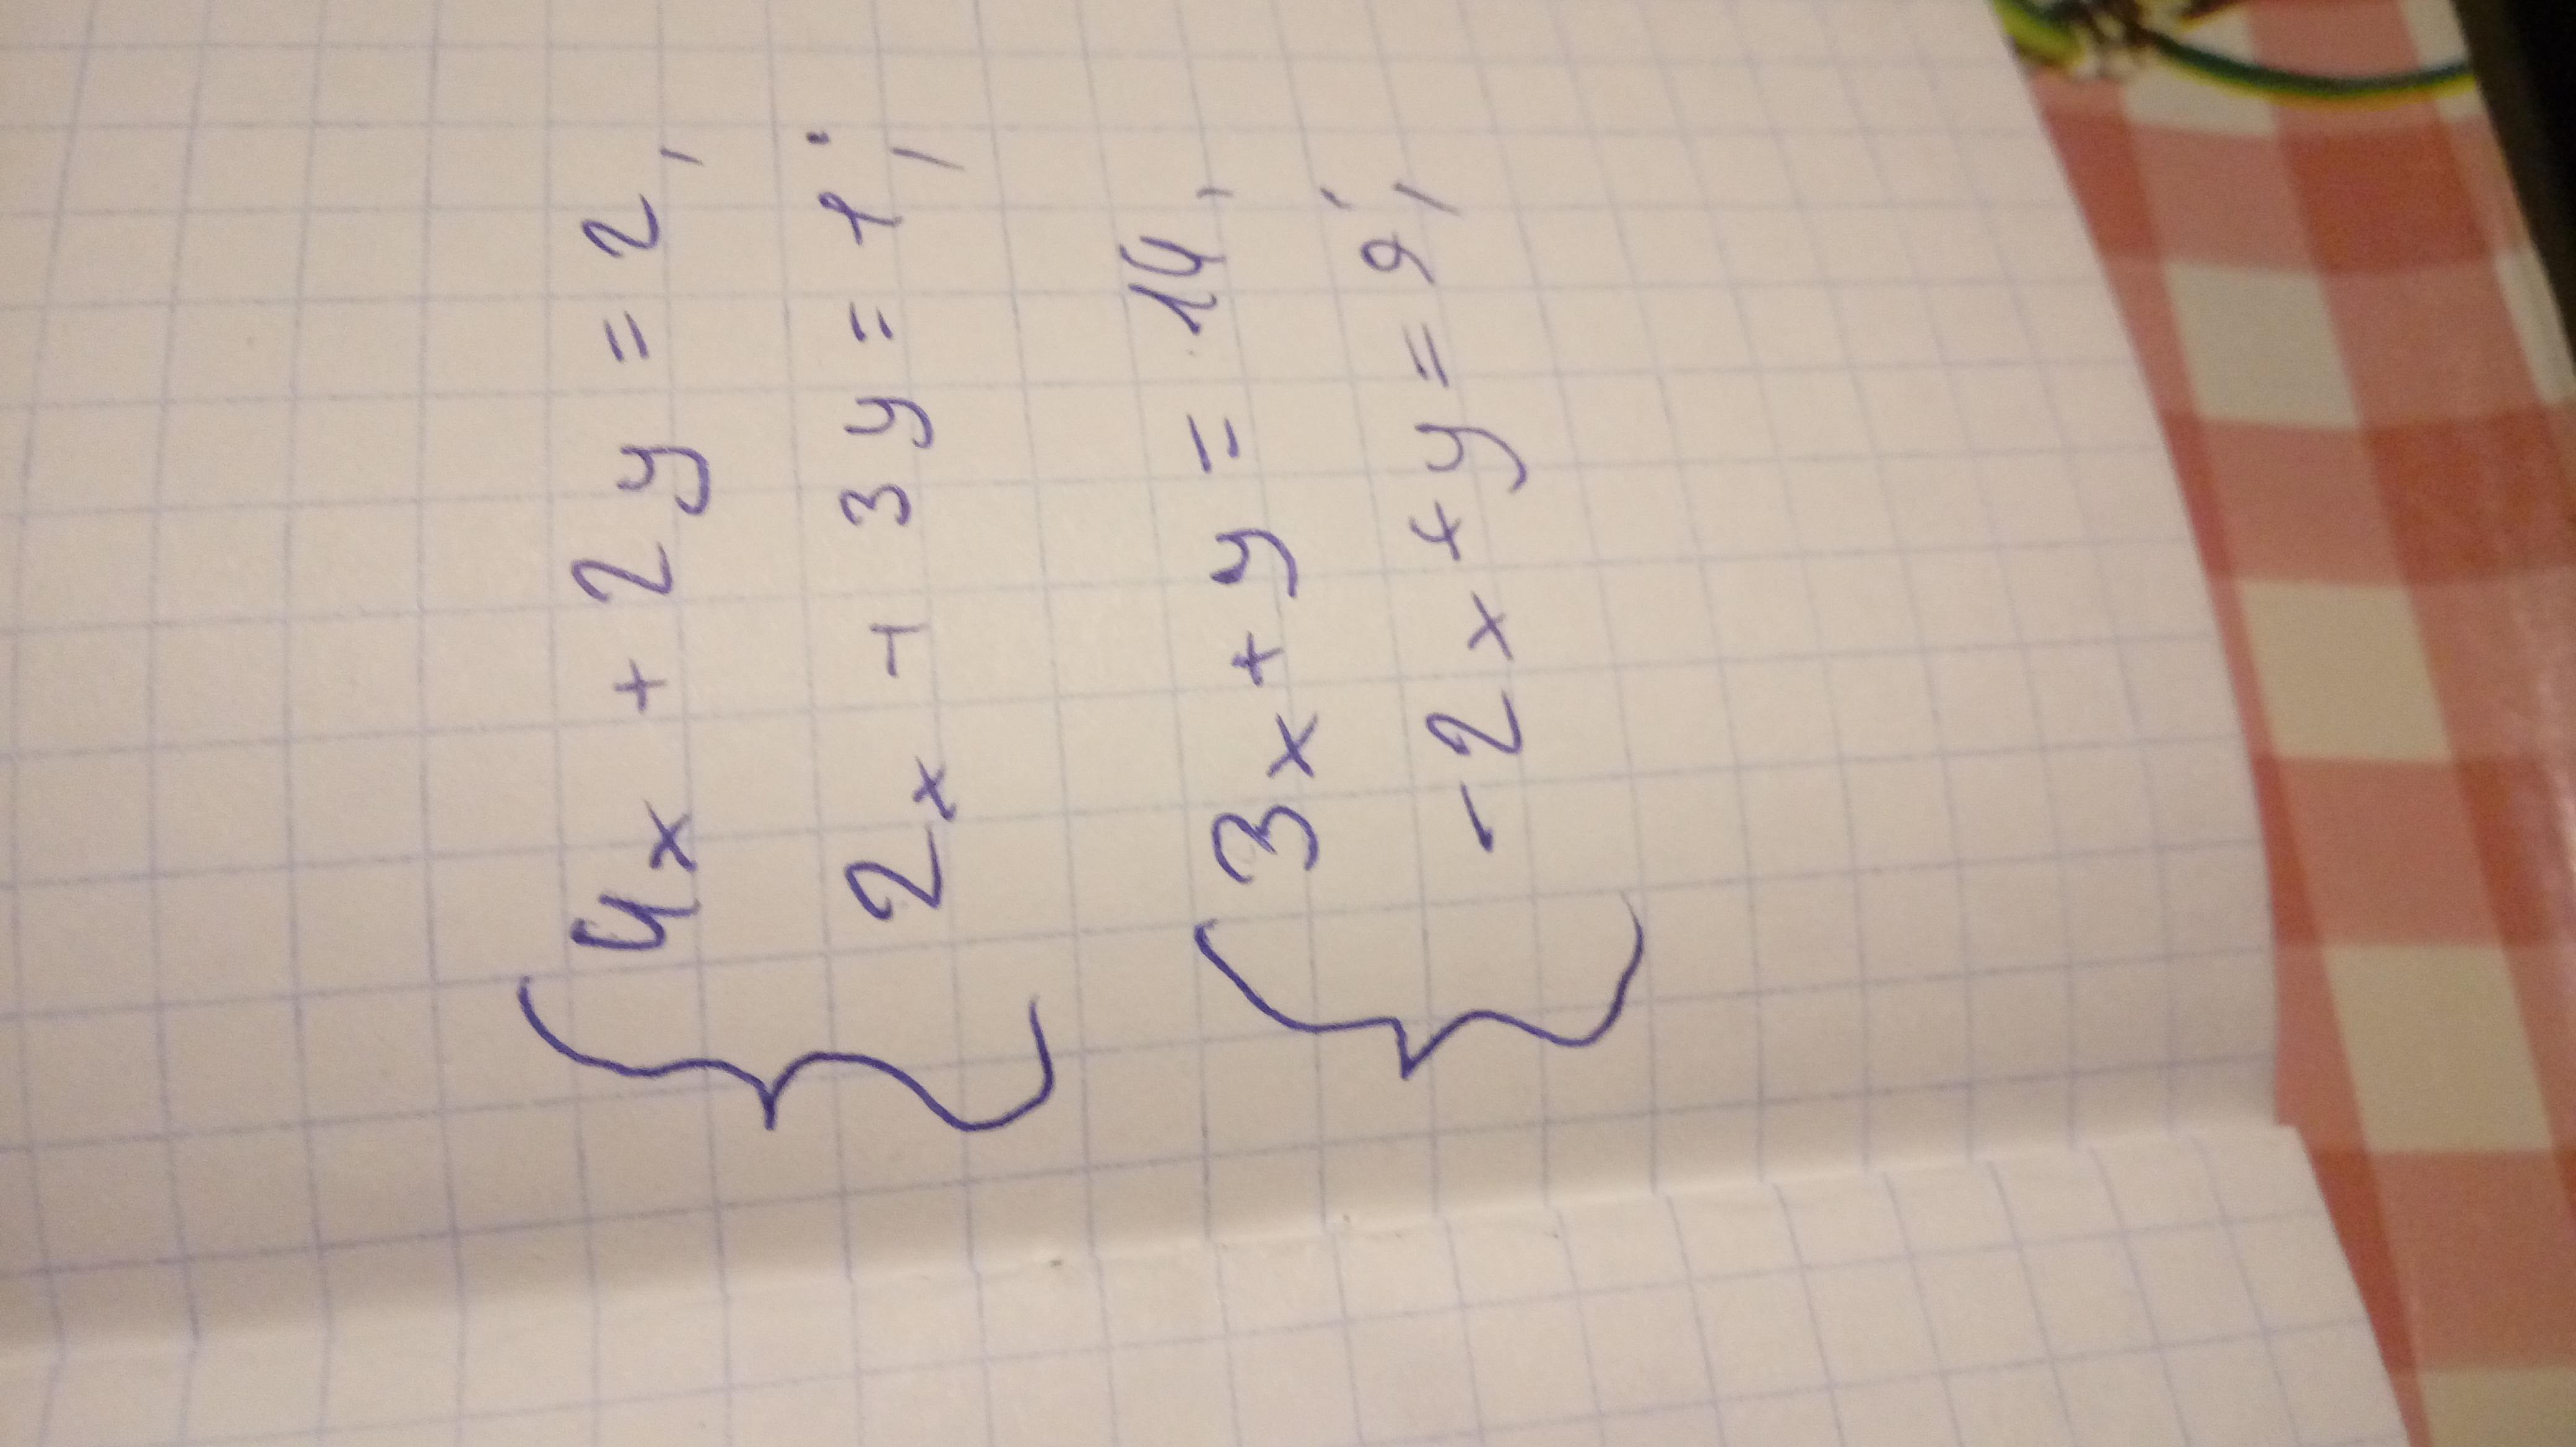 4x + 2y = 2,
2x + 3y = 1;
3x + y = 14,
-2x + y = 9;